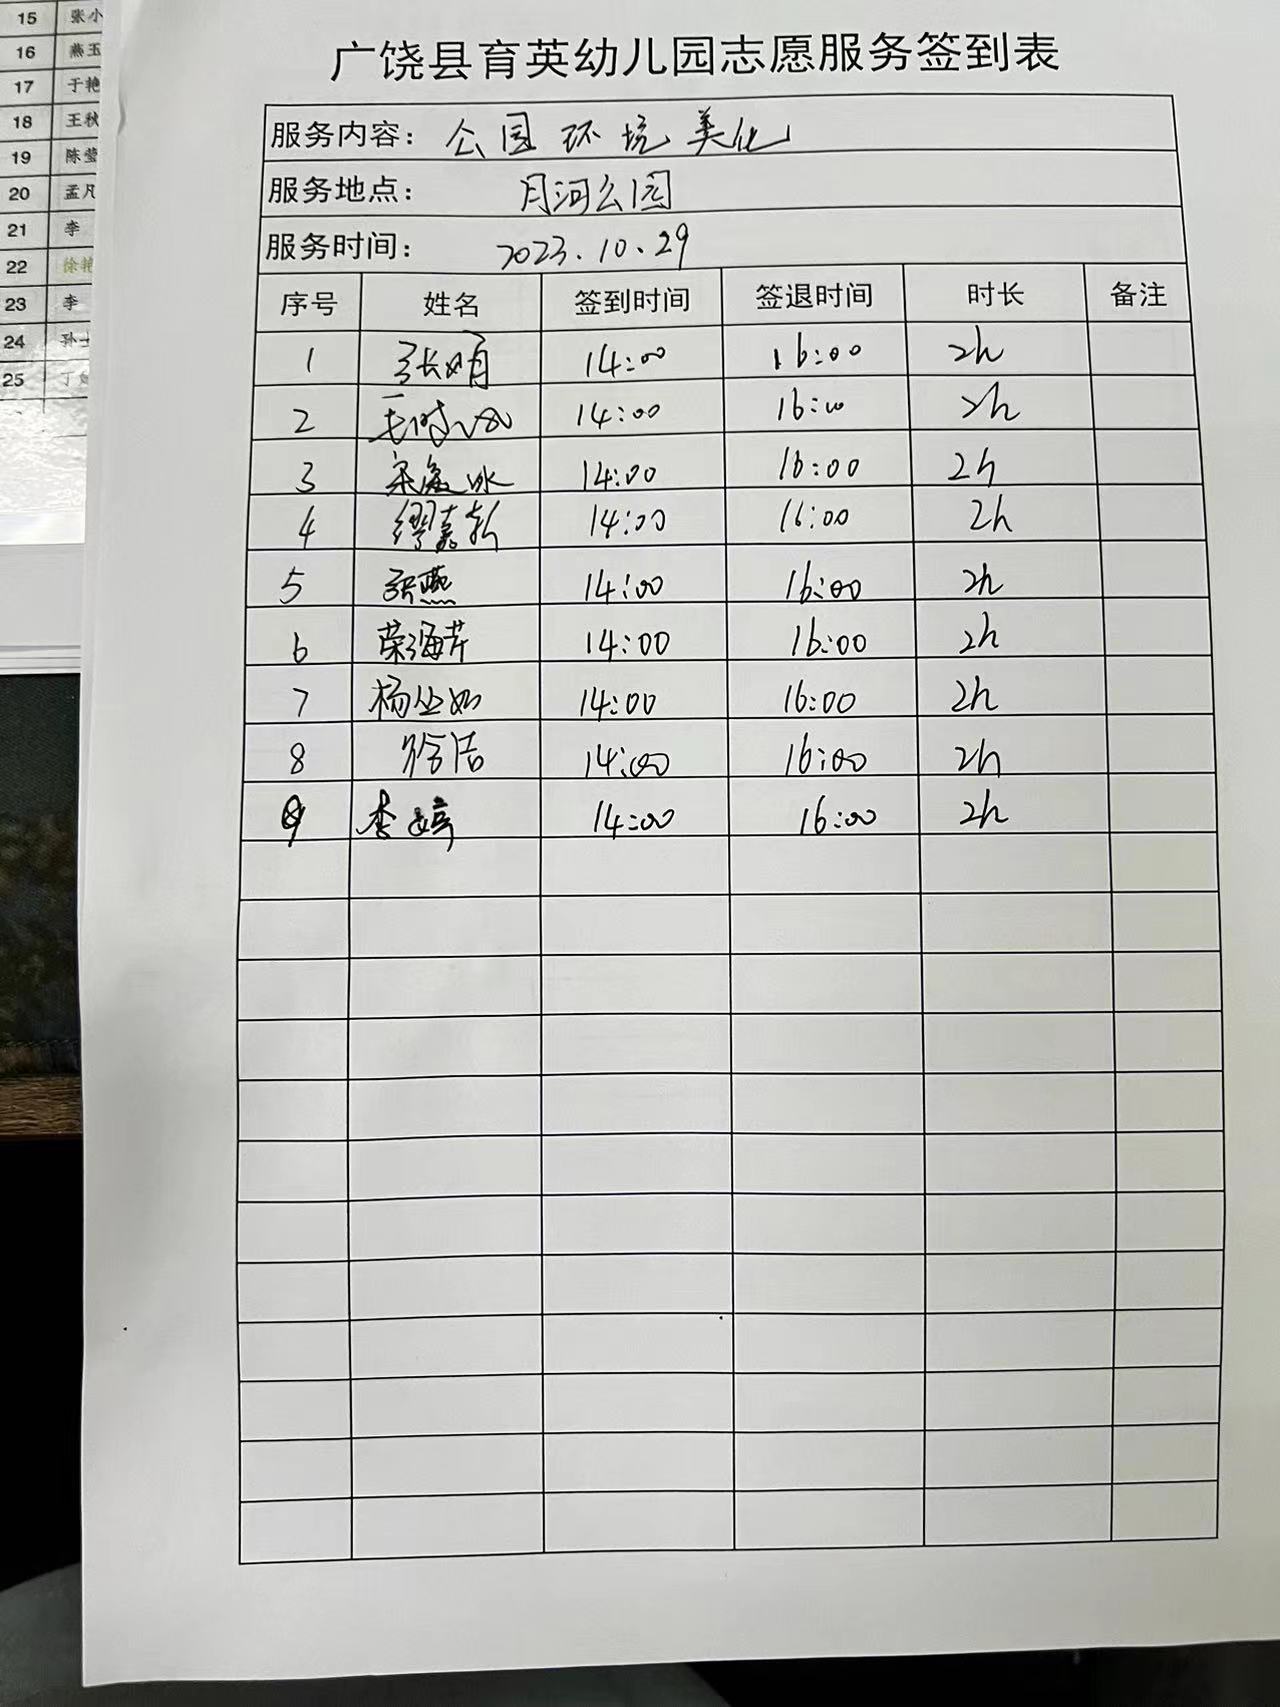 15 张小
16 燕玉
17 于艳
18 王秋
19 陈莹
20 孟凡
21 李
22 徐艳
23 李
24 孙
25 丁
广饶县育英幼儿园志愿服务签到表
服务内容： 公园环境美化
服务地点： 月河公园
服务时间： 2023.10.29
序号 姓名 签到时间 签退时间 时长 备注
1 张娟 14:00 16:00 2h
2 14:00 16:00 2h
3 14:00 16:00 2h
4 缪嘉 14:00 16:00 2h
5 张燕 14:00 16:00 2h
6 荣海芹 14:00 16:00 2h
7 杨 如 14:00 16:00 2h
8 徐洁 14:00 16:00 2h
9 李婷 14:00 16:00 2h